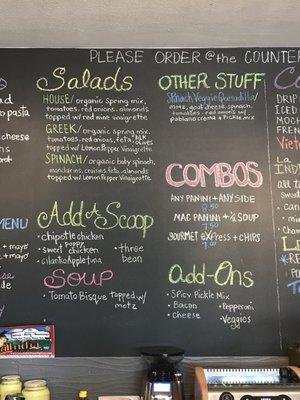 PLEASE ORDER @ the COUNTER
ad
o pasta
cheese
MENU
+ mayo
+ mayo
Salads
HOUSE/ organic spring mix,
tomatoes, red onions, almonds
topped w/ red wine vinaigrette
GREEK/ organic spring mix,
tomatoes, red onions, feta, BLK. OLIVES
topped w/ Lemon Pepper Vinaigrette
SPINACH/ organic baby spinach,
mandarins, cruises, feta, almonds
topped w/ Lemon Pepper Vinaigrette
Add A Scoop
• chipotle chicken
• sweet poppy chicken
• three bean
SOUP
• Tomato Bisque topped w/ motz
OTHER STUFF
Spinach Veggie Quesadilla/
motz, goat cheese, spinach,
tomatoes, red onions w/
poblano crema + Pickle mix
COMBOS
ANY PANINI + ANY SIDE
MAC PANINI + ½ SOUP
GOURMET EXPRESS + CHIPS
Add-Ons
• Spicy Pickle Mix
• Bacon
• Pepperoni
• Cheese
• Veggies
DRIP
ICED
MOCH
FRENCH
Viet
La
IND
all t